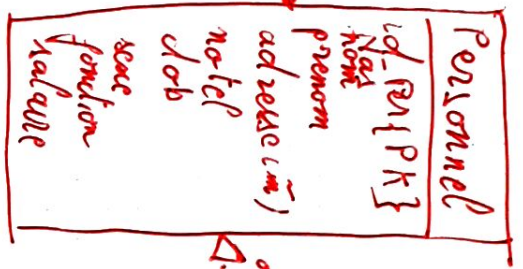 Personnel
id_per{PK}
nom
prenom
adresse(m)
notel
dob
sexe
fonction
salaire